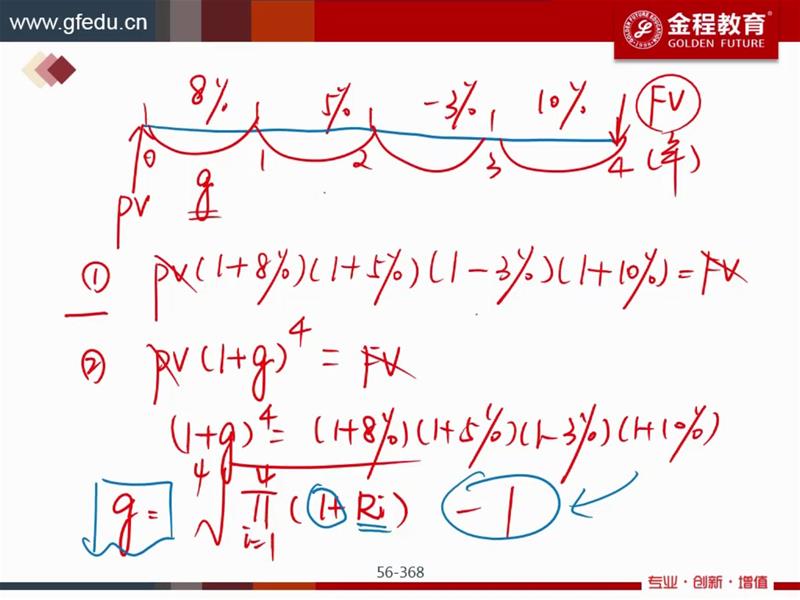 www.gfedu.cn
金程教育
GOLDEN FUTURE
8% 5% -3% 10% FV
0 1 2 3 4 (年)
PV g
① PV(1+8%)(1+5%)(1-3%)(1+10%)=FV
② PV(1+g)^4 = FV
(1+g)^4 = (1+8%)(1+5%)(1-3%)(1+10%)
g = ⁴√∏_{i=1}^{4}(1+Ri) -1
56-368
专业·创新·增值